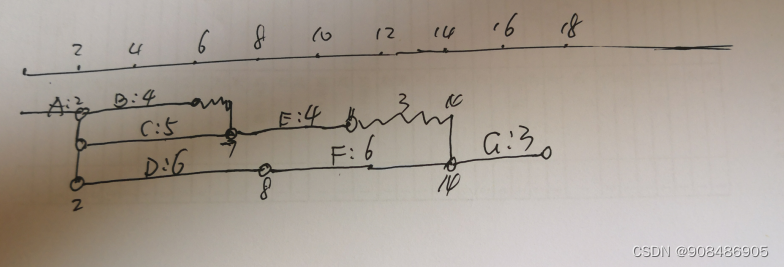 2 4 6 8 10 12 14 16 18
A:2 B:4 3 14
C:5 7 E:4 11
D:6 F:6 G:3
2 8 14
CSDN @908486905